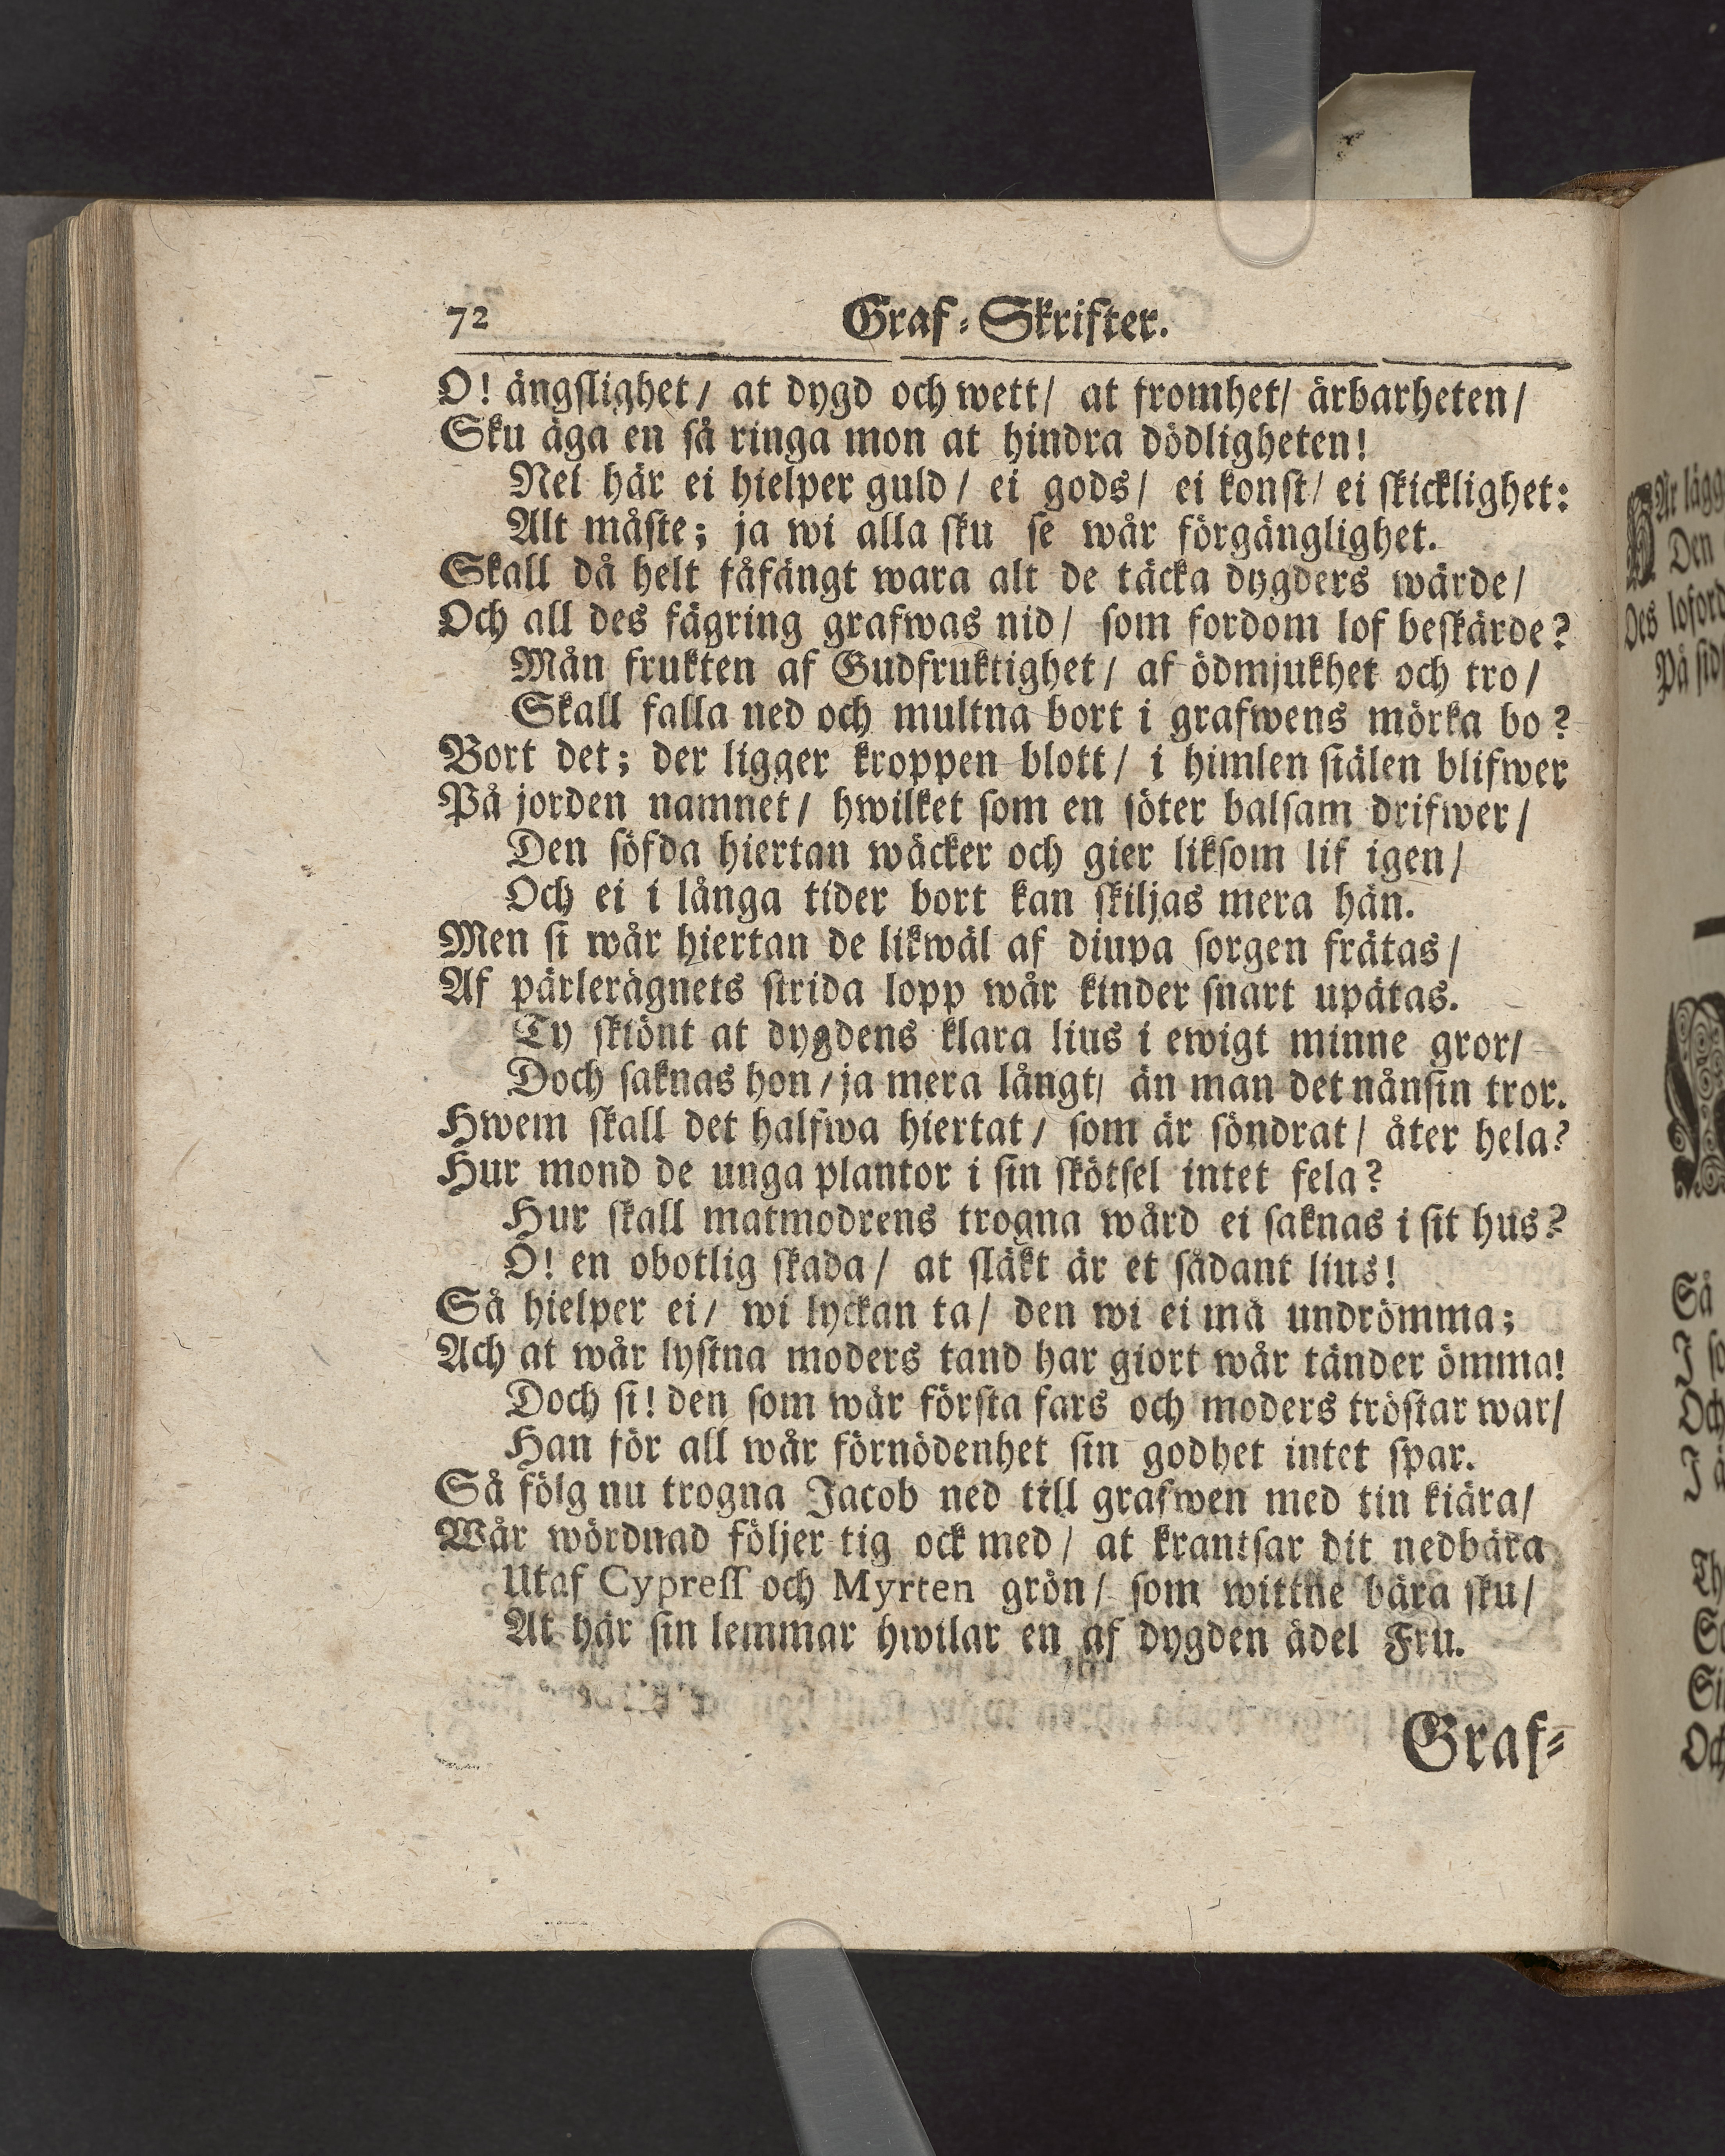 72 Graf-Skrifter.
O! ängslighet/ at dygd och wett/ at fromhet/ ärbarheten/
Sku äga en så ringa mon at hindra dödligheten!
Nei här ei hielper guld/ ei gods/ ei konst/ ei skicklighet:
Alt måste; ja wi alla sku se wår förgänglighet.
Skall då helt fåfängt wara alt de täcka dygders wärde/
Och all des fägring grafwas nid/ som fordom lof beskärde?
Mån frukten af Gudfruktighet/ af ödmjukhet och tro/
Skall falla ned och multna bort i grafwens mörka bo?
Bort det; der ligger kroppen blott/ i himlen siälen blifwer
På jorden namnet/ hwilket som en söter balsam drifwer/
Den söfda hiertan wäcker och gier liksom lif igen/
Och ei i långa tider bort kan skiljas mera hän.
Men si wår hiertan de likwäl af diupa sorgen frätas/
Af pärlerägnets strida lopp wår kinder snart upätas.
Ty skiönt at dygdens klara lius i ewigt minne gror/
Doch saknas hon/ ja mera långt/ än man det nånsin tror.
Hwem skall det halfwa hiertat/ som är söndrat/ åter hela?
Hur mond de unga plantor i sin skötsel intet fela?
Hur skall matmodrens trogna wård ei saknas i sit hus?
O! en obotlig skada/ at släkt är et sådant lius!
Så hielper ei/ wi lyckan ta/ den wi ei må undrömma;
Ach at wår lystna moders tand har giort wår tänder ömma!
Doch si! den som wår första fars och moders tröstar war/
Han för all wår förnödenhet sin godhet intet spar.
Så fölg nu trogna Jacob ned till grafwen med tin kiära/
Wår wördnad följer tig ock med/ at krantsar dit nedbära
Utaf Cypress och Myrten grön/ som wittne bära sku/
At här sin lemmar hwilar en af dygden ädel Fru.
Graf-
Är lägg
Den
Des loford
På sid
Så
I so
Och
I ä
Th
Så
Si
Och